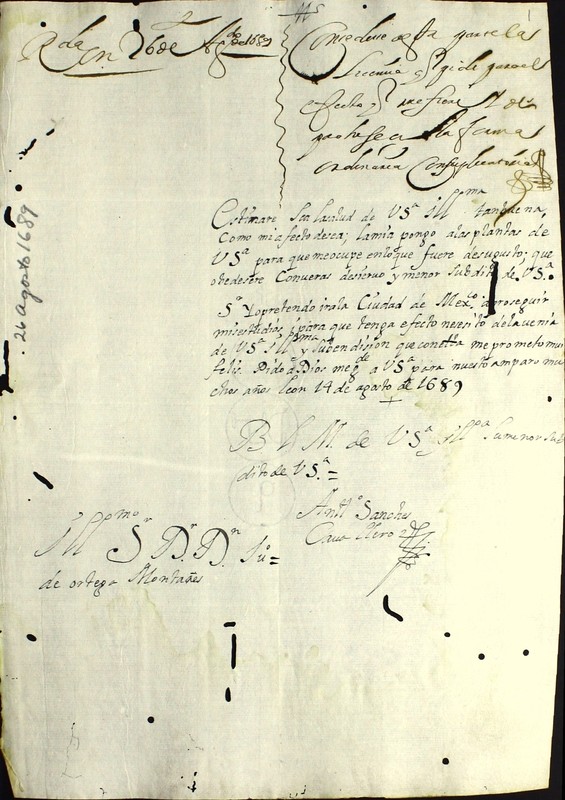 Rda
en 26 de Agto de 1689
Concedese a esta parte la
Licencia q pide para el
efecto q refiere
ordinaria
Estimare sea la salud de VSa Illma tan buena,
Como mi afecto desea; la mia pongo a las plantas de
VSa para que me ocupe en lo que fuere de su gusto; que
obedesere Con veras de siervo y menor subdito de VSa.
Sr Yo pretendo ir a la Ciudad de Mexco a proseguir
mis estudios, y para que tenga efecto nesesito de la venia
de VSa Illma y su bendision que con ella me prometo mui
felis. Pido a Dios me gde a VSa para nuestro amparo mu
chos años leon 14 de agosto de 1689
B L M. de VSa Illma Su menor sub
dito de VSa. =
Antto Sanches
Cavallero
Illmo Sr Dr Dn Juo =
de ortega Montañes
26 agosto 1689